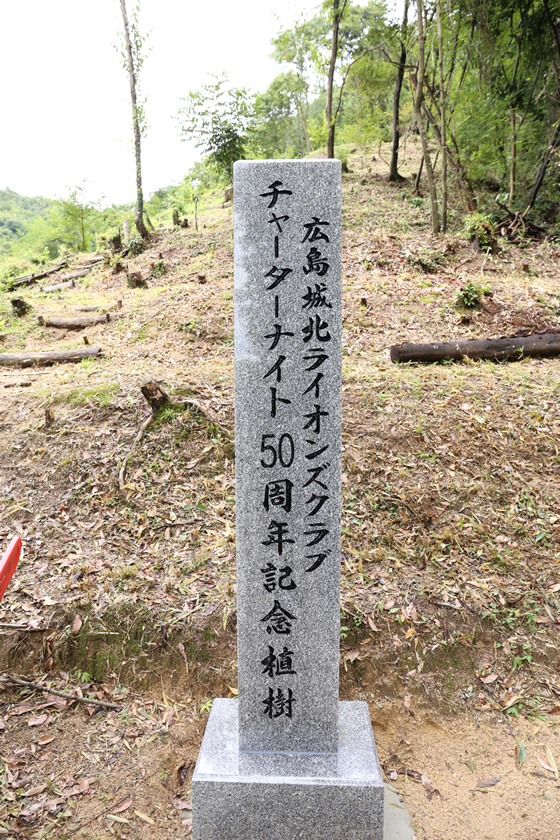 広島城北ライオンズクラブ
チャーターナイト50周年記念植樹